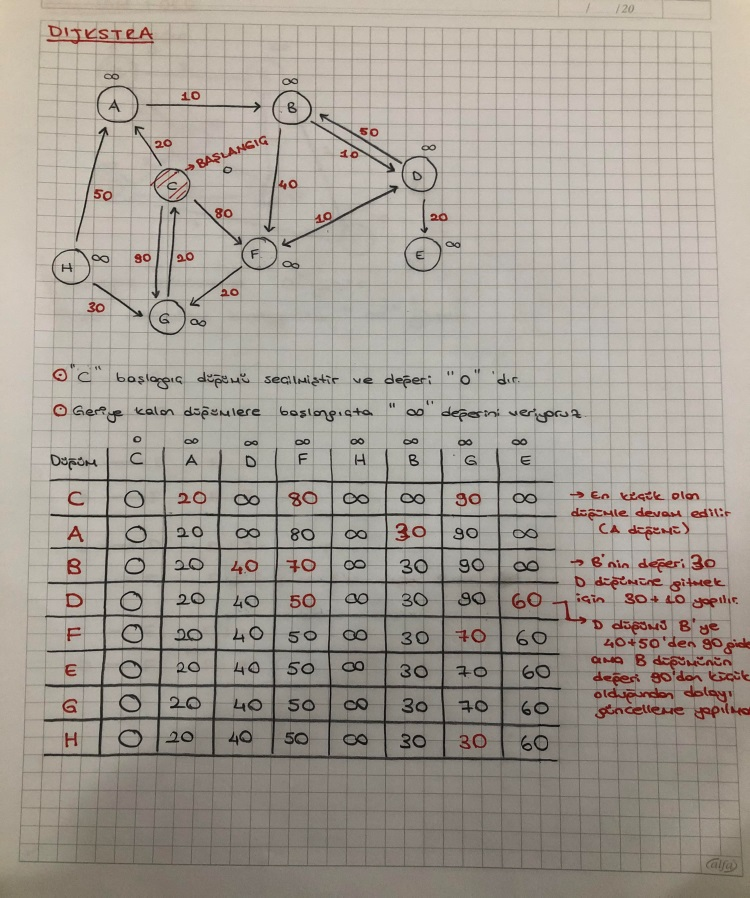 / /20
DIJKSTRA
∞
∞
A
10
B
50
∞
20
→ BAŞLANGIÇ
10
0
D
C
50
40
80
10
20
H
∞
90
20
F
∞
E
∞
30
20
G
∞
"C" başlangıç düğümü seçilmiştir ve değeri "0" 'dır.
Geriye kalan düğümlere başlangıçta "∞" değerini veriyoruz.
0 ∞ ∞ ∞ ∞ ∞ ∞ ∞
DÜĞÜM C A D F H B G E
C 0 20 ∞ 80 ∞ ∞ 90 ∞
A 0 20 ∞ 80 ∞ 30 90 ∞
B 0 20 40 70 ∞ 30 90 ∞
D 0 20 40 50 ∞ 30 90 60
F 0 20 40 50 ∞ 30 70 60
E 0 20 40 50 ∞ 30 70 60
G 0 20 40 50 ∞ 30 70 60
H 0 20 40 50 ∞ 30 30 60
→ En küçük olan
düğümle devam edilir
(A düğümü)
→ B'nin değeri 30
D düğümüne gitmek
için 30+10 yapılır.
→ D düğümü B'ye
40+50'den 90
ama B düğümünün
değeri 90'dan küçük
olduğundan dolayı
güncelleme
alfa